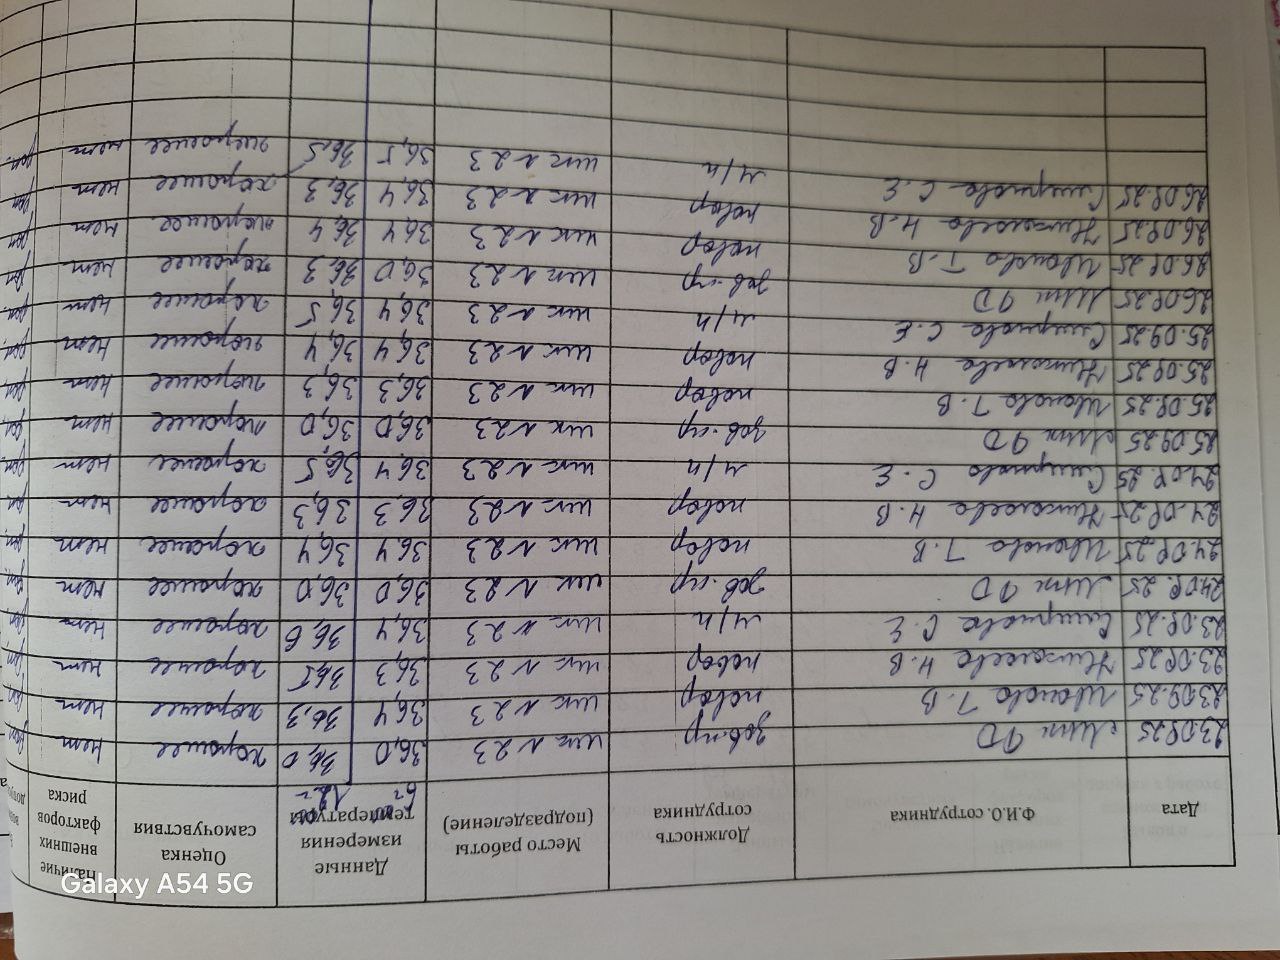 Дата Ф.И.О. сотрудника Должность сотрудника Место работы (подразделение) Данные измерения температуры Оценка самочувствия Наличие внешних факторов риска
23.09.25 Минк Ф.О зав.пр шк N 23 36,0 36,0 хорошее нет
23.09.25 Иванова Т.В повар шк N 23 36,4 36,3 хорошее нет
23.09.25 Николаева Н.В повар шк N 23 36,3 36,5 хорошее нет
23.09.25 Смирнова С.Е м/п шк N 23 36,4 36,6 хорошее нет
24.09.25 Минк Ф.О зав.пр шк N 23 36,0 36,0 хорошее нет
24.09.25 Иванова Т.В повар шк N 23 36,4 36,4 хорошее нет
24.09.25 Николаева Н.В повар шк N 23 36,3 36,3 хорошее нет
24.09.25 Смирнова С.Е м/п шк N 23 36,4 36,5 хорошее нет
25.09.25 Минк Ф.О зав.пр шк N 23 36,0 36,0 хорошее нет
25.09.25 Иванова Т.В повар шк N 23 36,3 36,3 хорошее нет
25.09.25 Николаева Н.В повар шк N 23 36,4 36,4 хорошее нет
25.09.25 Смирнова С.Е м/п шк N 23 36,4 36,5 хорошее нет
26.09.25 Минк Ф.О зав.пр шк N 23 36,0 36,3 хорошее нет
26.09.25 Иванова Т.В повар шк N 23 36,4 36,4 хорошее нет
26.09.25 Николаева Н.В повар шк N 23 36,4 36,3 хорошее нет
26.09.25 Смирнова С.Е м/п шк N 23 36,5 36,5 хорошее нет
Galaxy A54 5G